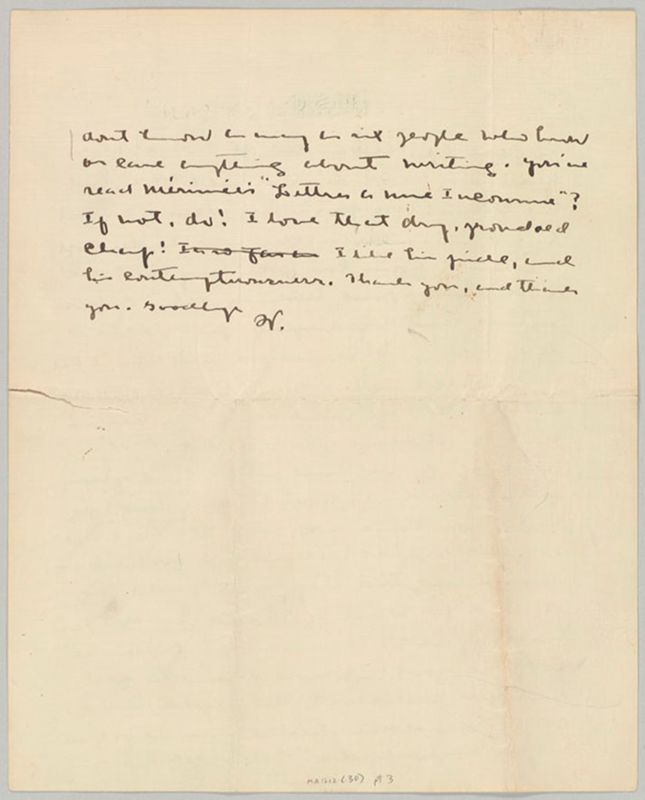 dont know as many as six people who know
or care anything about writing. You've
read Mérimée's "Lettres à une Inconnue"?
If not, do! I love that dry, grounded
chap! I like his pride, and
his contemptuousness. Thank you, and thank
you. Goodbye
W.
MA1212(30) p3